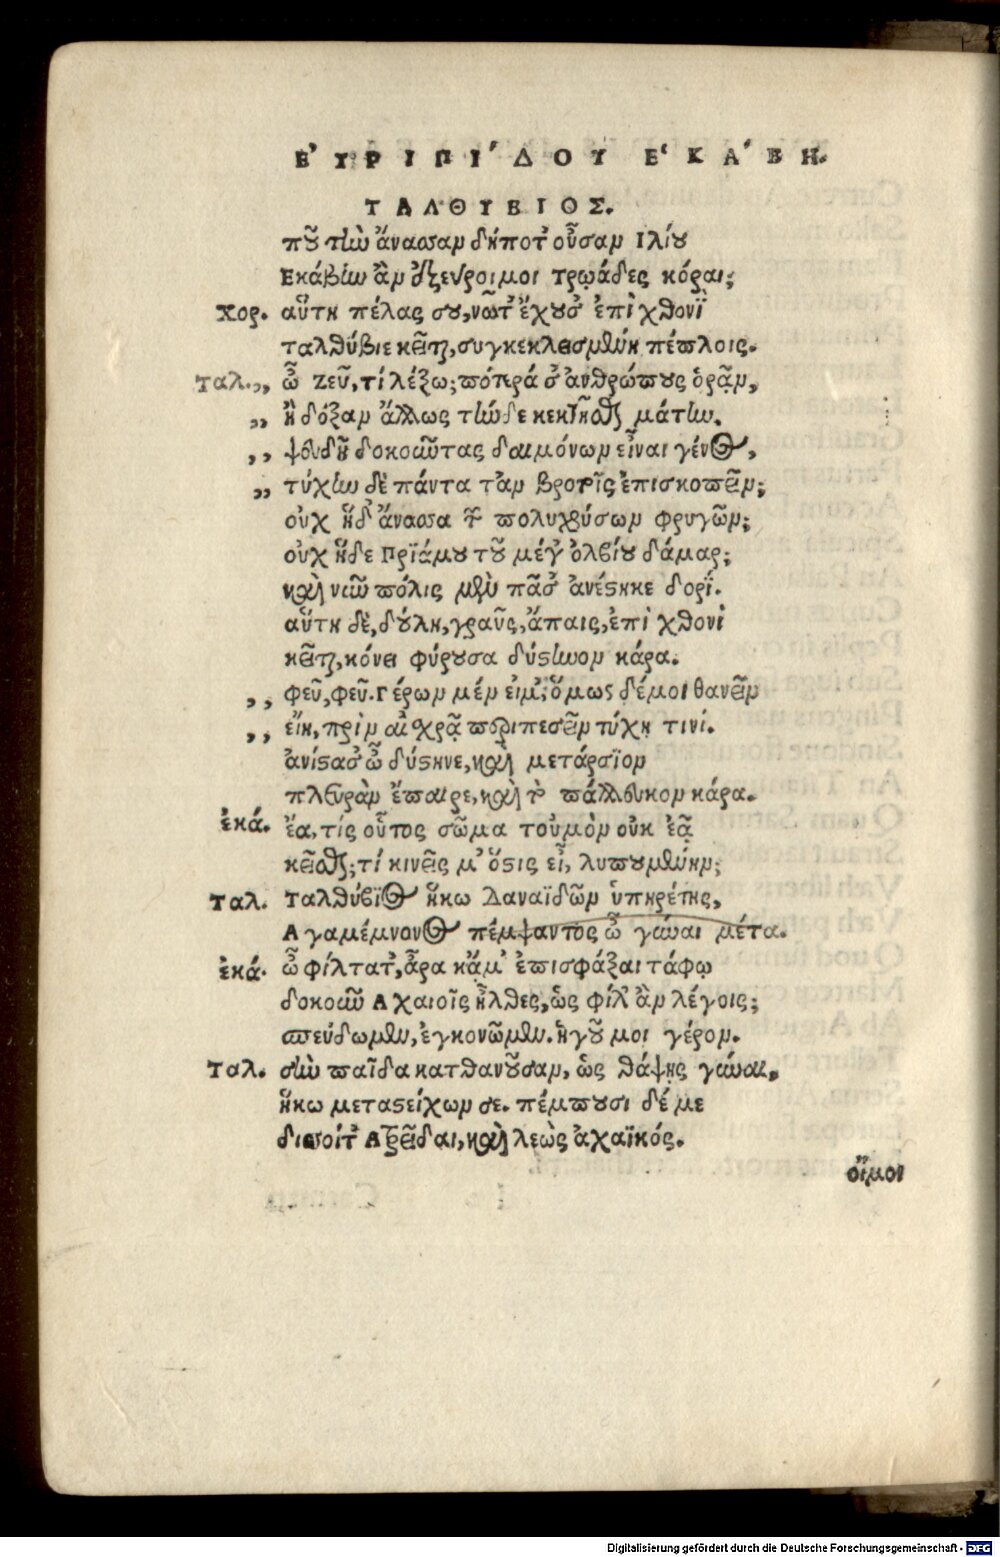 ΕʼΥΡΙΠΙʹΔΟΥ ΕʽΚΑʹΒΗ.
ΤΑΛΘΥΒΙΟΣ.
ποῦ τὴν ἄνασσαν δήποτ' οὖσαν Ιλίου
Εκάβην ἂν ἐξεύροιμοι Τρῳάδες κόραι;
Χορ. αὕτη πέλας σου, νῶτ' ἔχουσ' ἐπὶ χθονῒ
ταλθύβιε κεῖται, συγκεκλεισμένη πέπλοις.
Ταλ. ,, ὦ Ζεῦ, τί λέξω; πότερά σ' ἀνθρώπους ὁρᾷν,
,, ἢ δόξαν ἄλλως τήνδε κεκτῆσθαι μάτην.
,, ψευδῆ δοκοῦντας δαιμόνων εἶναι γένος,
,, τύχην δὲ πάντα τἀν βροτοῖς ἐπισκοπεῖν;
οὐχ ἥδ' ἄνασσα τῶν πολυχρύσων φρυγῶν;
οὐχ ἥδε Πρϊάμου τοῦ μέγ' ὀλβίου δάμαρ;
καὶ νῦν πόλις μὲν πᾶσ' ἀνέστηκε δορΐ.
αὕτη δὲ, δούλη, γραῦς, ἄπαις, ἐπὶ χθονὶ
κεῖται, κόνει φύρουσα δύστηνον κάρα.
,, φεῦ, φεῦ. Γέρων μέν εἰμ', ὅμως δέμοι θανεῖν
,, εἴη, πρὶν αἰσχρᾷ περιπεσεῖν τύχῃ τινί.
ἀνίστασ' ὦ δύστηνε, καὶ μετάρσϊον
πλευρὰν ἔπαιρε, καὶ τὸ πάλλευκον κάρα.
ἑκά. ἔα, τίς οὗτος σῶμα τοὐμὸν οὐκ ἐᾷ
κεῖσθαι; τί κινεῖς μ' ὅστις εἶ, λυπουμένην;
Ταλ. Ταλθύβϊος ἥκω Δαναϊδῶν ὑπηρέτης,
Αγαμέμνονος πέμψαντος ὦ γύναι μέτα.
ἑκά. ὦ φίλτατ', ἆρα κἄμ' ἐπισφάξαι τάφῳ
δοκοῦν Αχαιοῖς ἦλθες, ὡς φίλ' ἂν λέγοις;
σπεύδωμεν, ἐγκονῶμεν. ἡγοῦ μοι γέρον.
Ταλ. σὴν παῖδα κατθανοῦσαν, ὡς θάψῃς γύναι,
ἥκω μεταστείχων σε. πέμπουσι δέ με
δισσοίτ' Ατρεῖδαι, καὶ λεὼς ἀχαϊκός.
οἴμοι
Digitalisierung gefördert durch die Deutsche Forschungsgemeinschaft - DFG